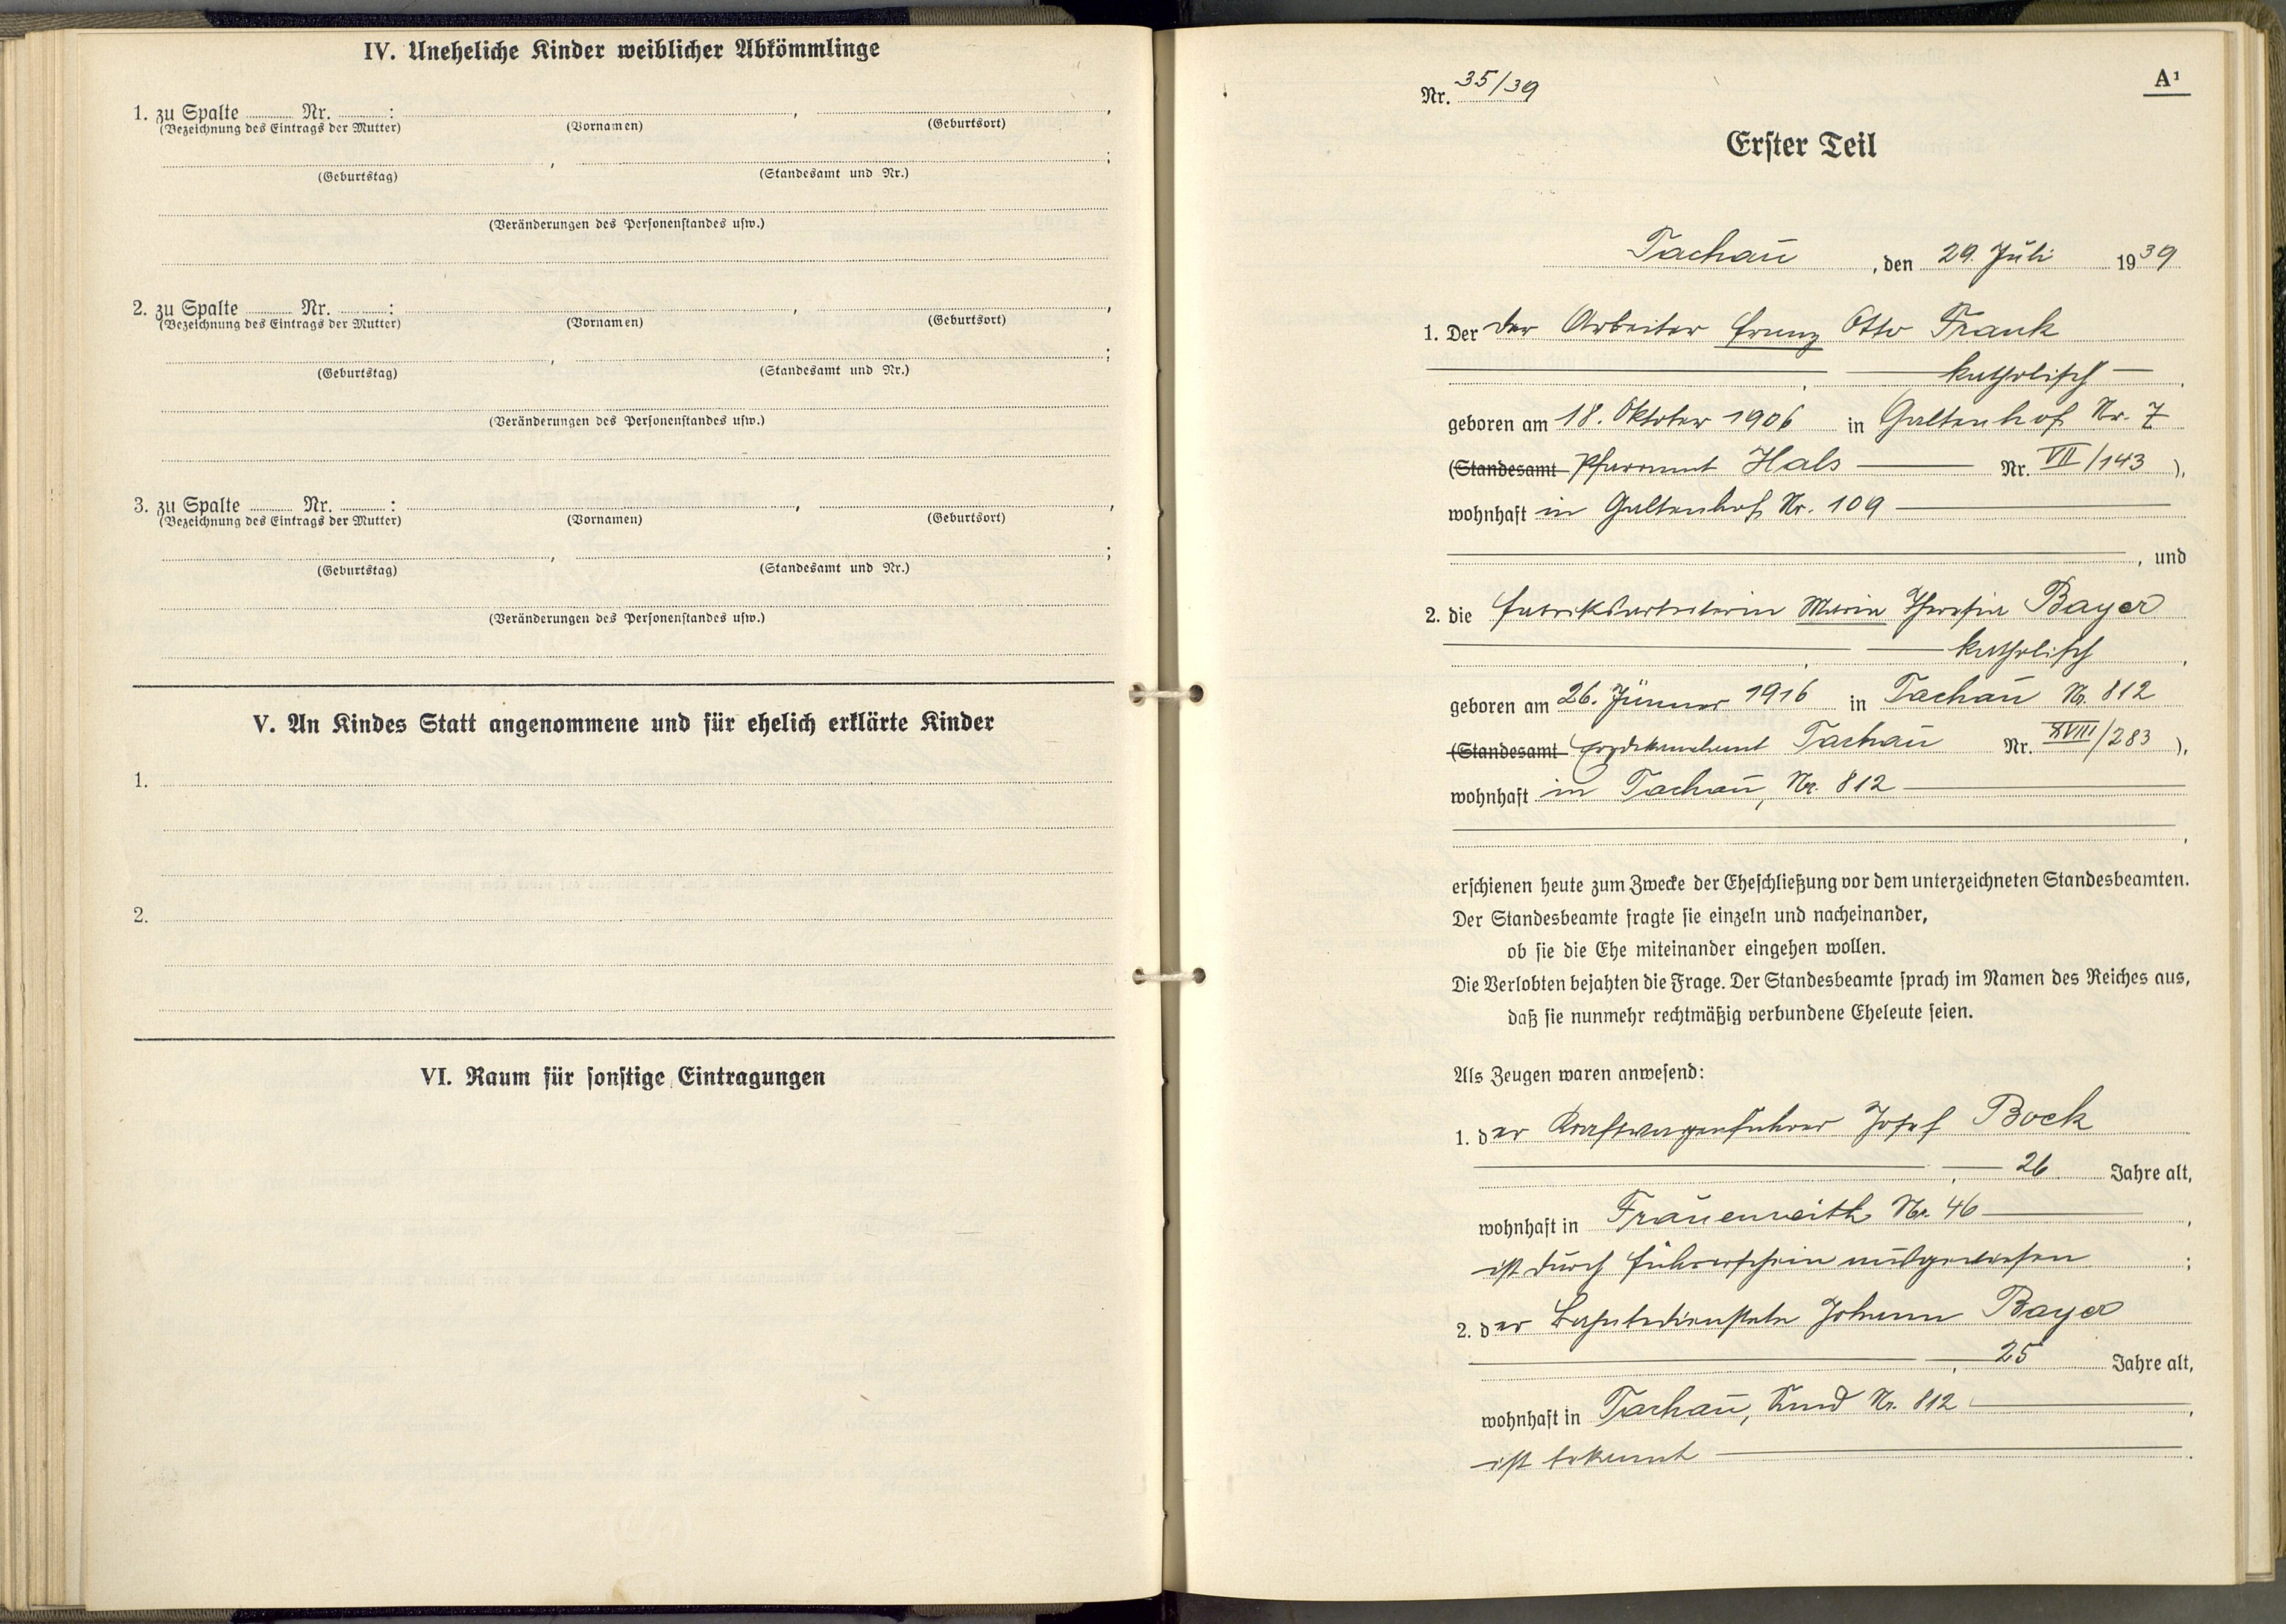 IV. Uneheliche Kinder weiblicher Abkömmlinge
1. zu Spalte ........ Nr. ........: ........, ........,
(Bezeichnung des Eintrags der Mutter) (Vornamen) (Geburtsort)
........, ........;
(Geburtstag) (Standesamt und Nr.)
(Veränderungen des Personenstandes usw.)
2. zu Spalte ........ Nr. ........: ........, ........,
(Bezeichnung des Eintrags der Mutter) (Vornamen) (Geburtsort)
........, ........;
(Geburtstag) (Standesamt und Nr.)
(Veränderungen des Personenstandes usw.)
3. zu Spalte ........ Nr. ........: ........, ........,
(Bezeichnung des Eintrags der Mutter) (Vornamen) (Geburtsort)
........, ........;
(Geburtstag) (Standesamt und Nr.)
(Veränderungen des Personenstandes usw.)
V. An Kindes Statt angenommene und für ehelich erklärte Kinder
1.
2.
VI. Raum für sonstige Eintragungen
A¹
Nr. 35/39
Erster Teil
Tachau, den 29. Juli 1939
1. Der der Arbeiter Franz Otto Frank
, katholisch,
geboren am 18. Oktober 1906 in Galtenhof Nr. 7
(Standesamt Pfarramt Hals Nr. VII/143),
wohnhaft in Galtenhof Nr. 109
, und
2. die Fabriksarbeiterin Maria Theresia Bayer
, katholisch,
geboren am 26. Jänner 1916 in Tachau Nr. 812
(Standesamt Erzdekanalamt Tachau Nr. XVIII/283),
wohnhaft in Tachau, Nr. 812
,
erschienen heute zum Zwecke der Eheschließung vor dem unterzeichneten Standesbeamten.
Der Standesbeamte fragte sie einzeln und nacheinander,
ob sie die Ehe miteinander eingehen wollen.
Die Verlobten bejahten die Frage. Der Standesbeamte sprach im Namen des Reiches aus,
daß sie nunmehr rechtmäßig verbundene Eheleute seien.
Als Zeugen waren anwesend:
1. der Kraftwagenführer Josef Bock
, 26 Jahre alt,
wohnhaft in Frauenreith Nr. 46,
ist durch Führerschein ausgewiesen;
2. der Bahnbedienstete Johann Bayer
, 25 Jahre alt,
wohnhaft in Tachau, Nr. 812,
ist bekannt.